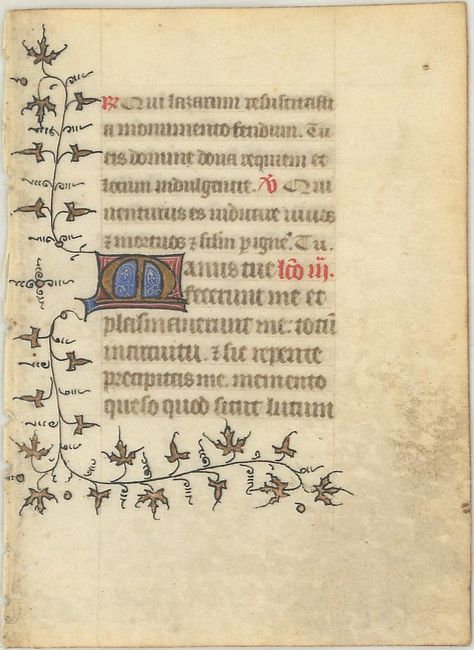 R Qui lazarum resuscitasti
a monumento fetidum. Tu
eis domine dona requiem et
locum indulgentie. V Qui
venturus es iudicare vivos
⁊ mortuos ⁊ seculum per ignem. Tu.
Manus tue lco iii.
fecerunt me et
plasmaverunt me. totum
in circuitu. ⁊ sic repente
precipitas me. memento
queso quod sicut lutum